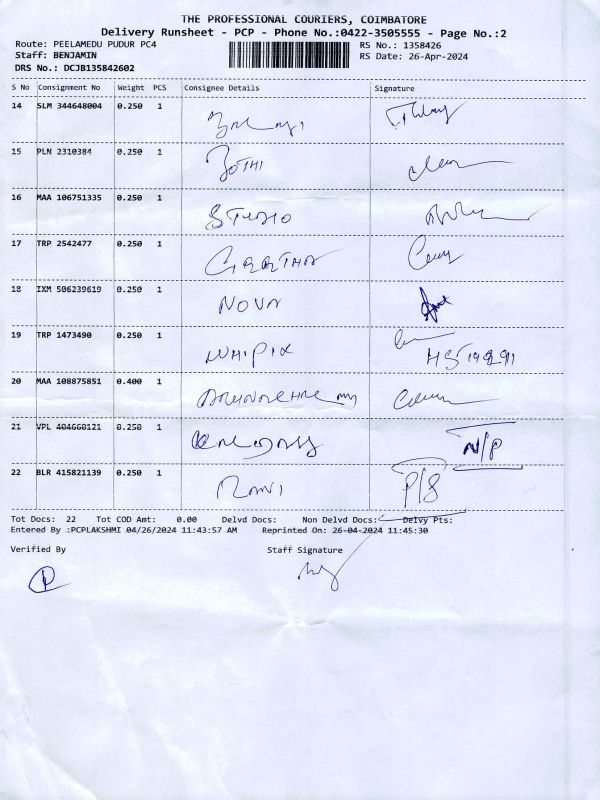 THE PROFESSIONAL COURIERS, COIMBATORE
Delivery Runsheet - PCP - Phone No.:0422-3505555 - Page No.:2
Route: PEELAMEDU PUDUR PC4 RS No.: 1358426
Staff: BENJAMIN RS Date: 26-Apr-2024
DRS No.: DCJB135842602
S No Consignment No Weight PCS Consignee Details Signature
14 SLM 344648004 0.250 1
15 PLN 2310384 0.250 1 JOTHI
16 MAA 106751335 0.250 1 STUDIO
17 TRP 2542477 0.250 1
18 IXM 506239619 0.250 1 NOVA
19 TRP 1473490 0.250 1 WHIPIX
20 MAA 108875851 0.400 1
21 VPL 404660121 0.250 1 N/P
22 BLR 415821139 0.250 1 RAVI P/S
Tot Docs: 22 Tot COD Amt: 0.00 Delvd Docs: Non Delvd Docs: Delvy Pts:
Entered By :PCPLAKSHMI 04/26/2024 11:43:57 AM Reprinted On: 26-04-2024 11:45:30
Verified By Staff Signature